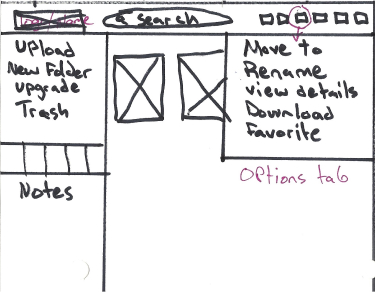 search
Upload
New Folder
upgrade
Trash
Notes
Move to
Rename
view details
Download
Favorite
Options tab